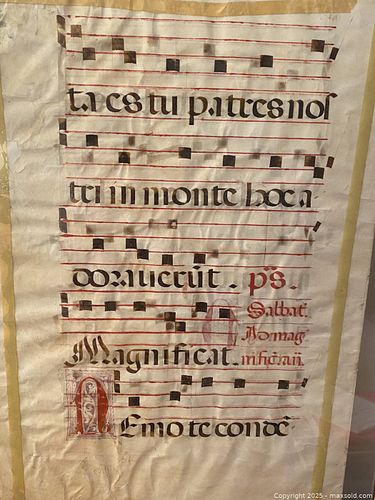 ta es tu patres nos
tri in monte hoc a
dorauerūt. ps.
Sabbat.
Ad mag
Magnificat.
Nemo te condē
Copyright 2025 - maxsold.com